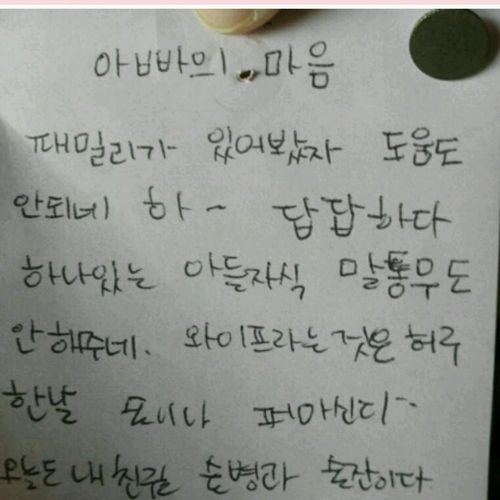 아빠의 마음
패밀리가 있어봤자 도움도
안되네 하~ 답답하다
하나있는 아들자식 말통무도
안해주네. 와이프라는것은 허루
한날 토이나 퍼마신다..
오늘도 내친굴 술병과 술잔이다